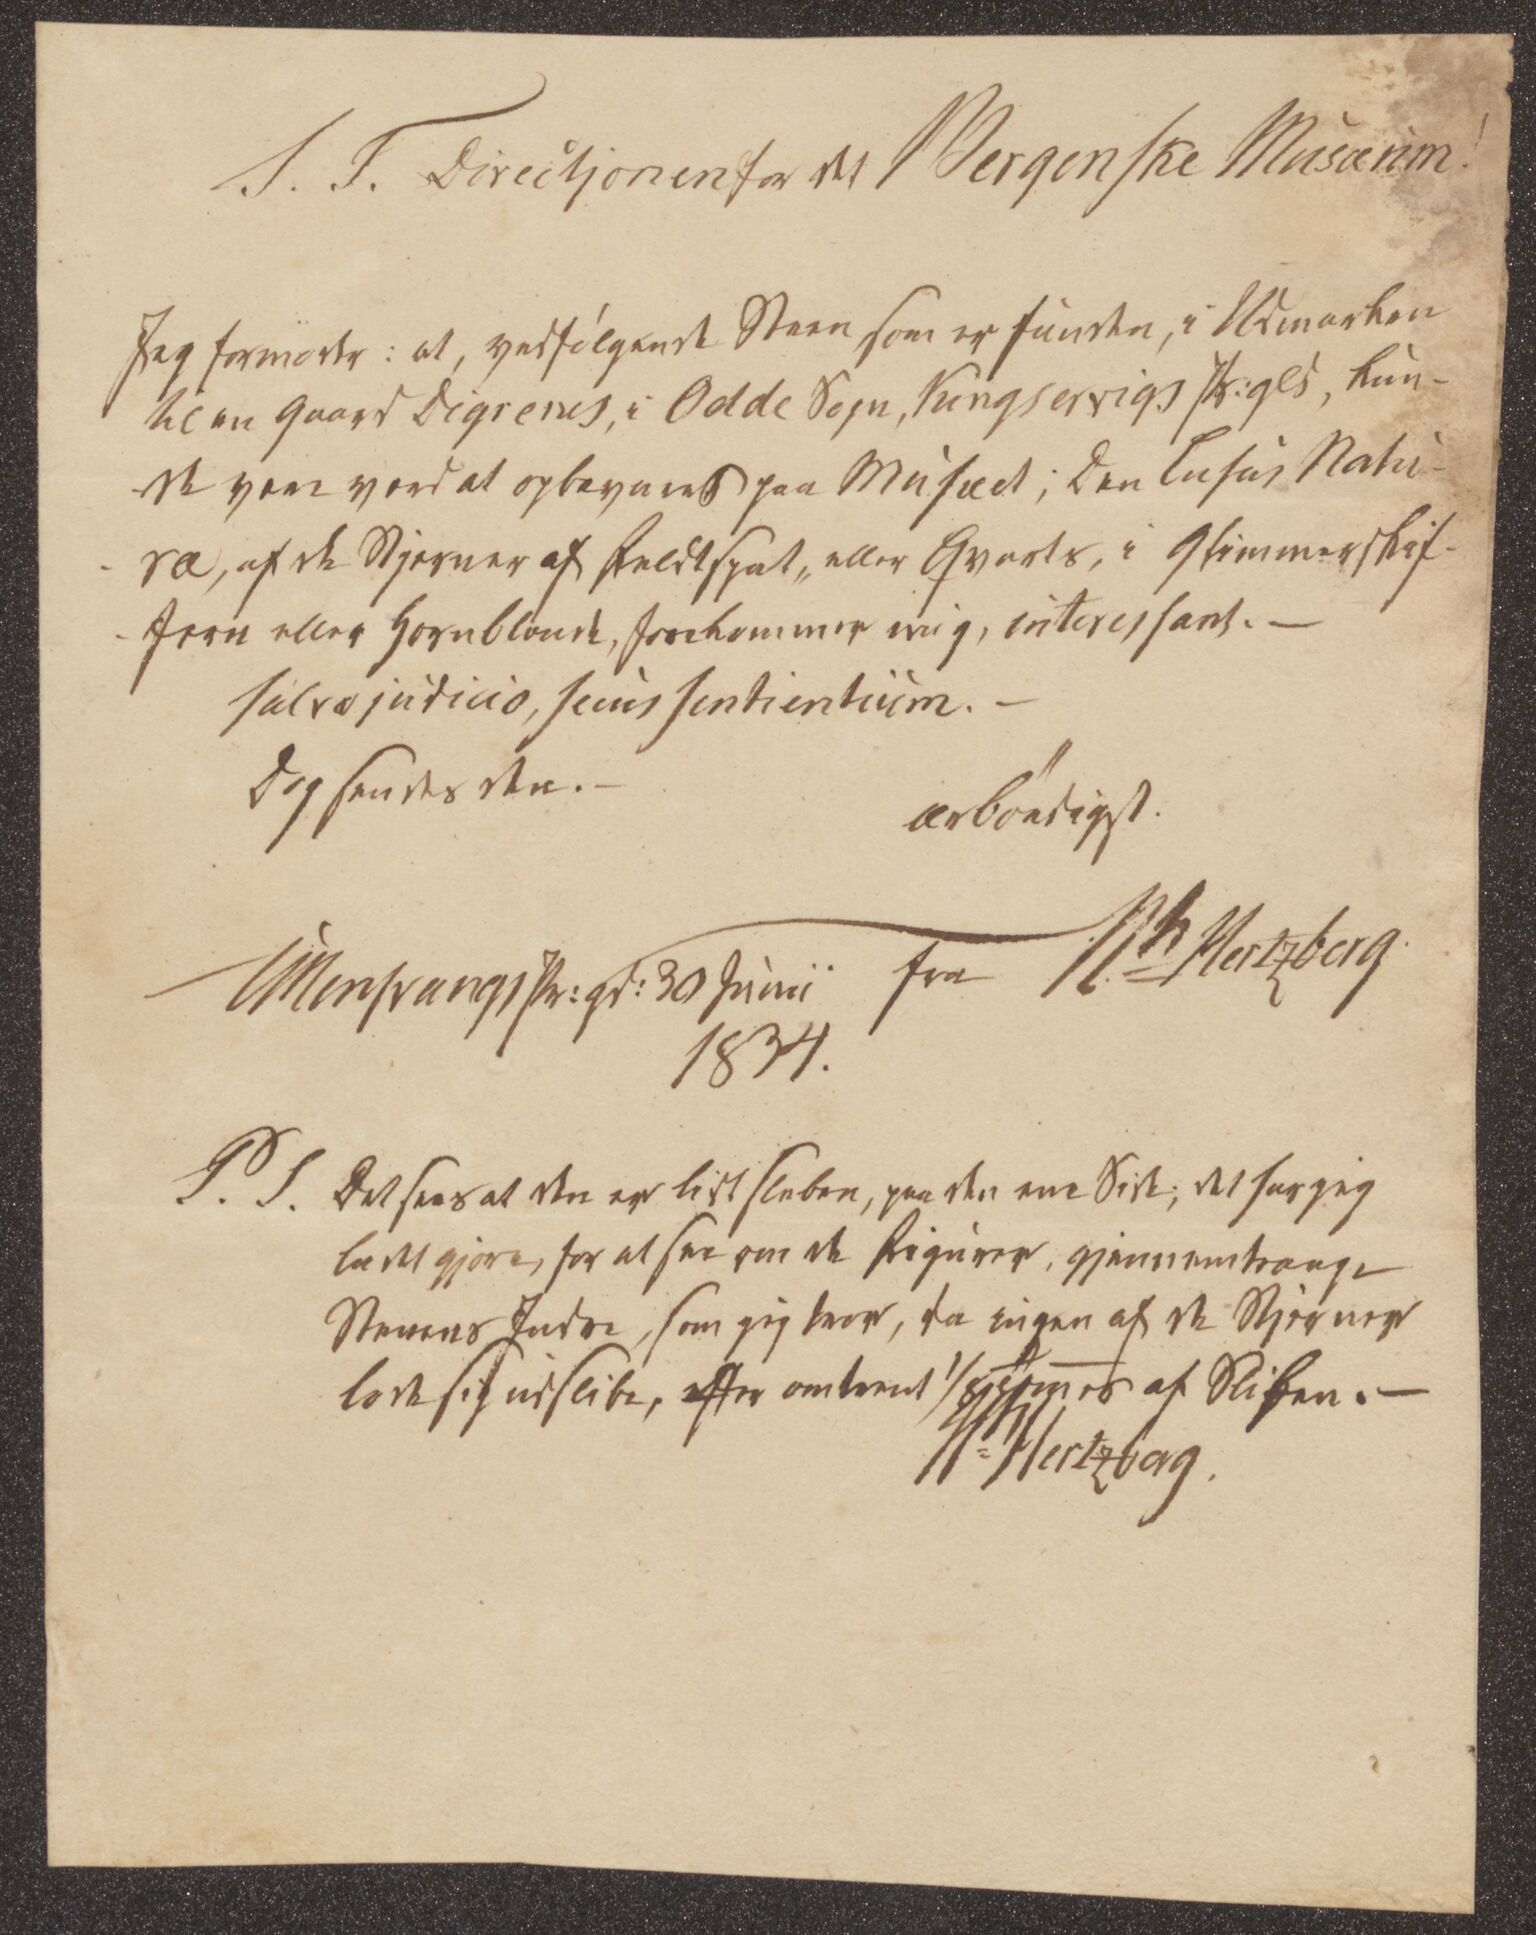 S. T. Directionen for det Bergenske Musæum!
Jeg formoder: at, vedfølgende Steen som er funden, i Udmarken
til en Gaard Digrenes, i Odde Sogn, Kingservigs Pr:gld, kun-
de være værd at opbevares paa Musæet; Den Lusus Natu-
-ræ, af de Stjerner af Feldtspat, eller Qvarts, i Glimmerskif-
-feren eller Hornblende, forekommer mig, interessant. —
salvo judicio, secus sentientium. —
Dog sendes den. —
ærbödigst.
Ullensvangs Pr: gd: 30 Junii fra N. Hertzberg.
1834.
P. S. Det sees at den er lidt sleben, paa den ene Side; det har jeg
ladet gjöre, for at see om de Figurer, gjennemtrænge
Stenens Indre, som jeg troer, da ingen af de Stjerner
lode sig udslibe, efter omtrent af Sliben. —
N. Hertzberg.